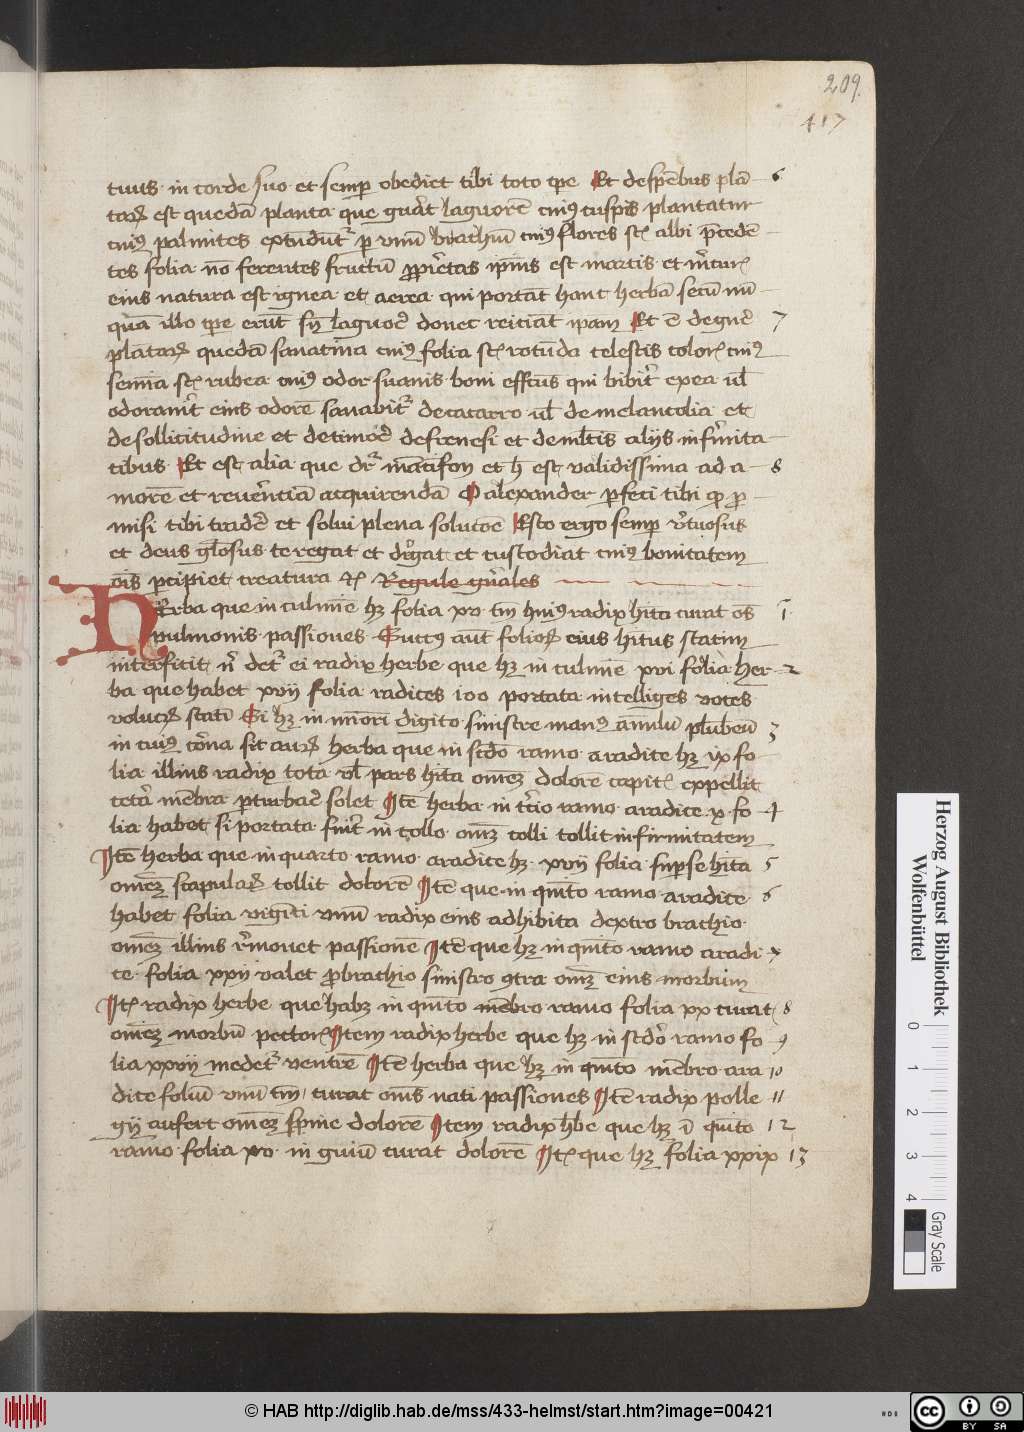 209.
417
tuus in corde suo et semp obediet tibi toto tpe Et de spēbus plā 6
taꝝ est quedā planta que gūat laguorē cuiꝰ cuspis plantatur
cuiꝰ palmites extūdūtᷣ p vnū brachiū cuiꝰ flores sūt albi pcedē
tes folia nō ferentes fructū ꝓpietas ipius est martis et mͥcurij
eius natura est ignea et aerea qui portāt hanc herbā secū nū
quā illo tpe erūt sn laguoē donec reiciāt ipam Et ē de gnē 7
plantaꝝ quedā sanatiua cuiꝰ folia sūt rotūda celestis coloris cuiꝰ
semīa sūt rubea cuiꝰ odor suauis boni effctūs qui bibit ex ea ul
odorauit eius odorē sanabitᷣ de catarro ul de melancolia et
de sollicitudine et de timoē de frenesi et de mltis alijs infirmita
tibus Et est alia que drᷣ et h est validissima ad a 8
morē et reuerētiā acquirendā O alexander pfeci tibi qd p
misi tibi tradē et solui plena solutōe Esto ergo semp vtuosus
et deus glosus te regat et dirgat et custodiat cuiꝰ bonitatem
oīs pcipiet creatura Regule gnales
HErba que in culmīe hꝫ folia xv tm huiꝰ radix hita curat oēs 1
pulmonis passiones Succꝰ aut folioꝝ eius hitus statim
interficit nͥ detᷣ ei radix herbe que hꝫ in culmīe xvi folia Her 2
ba que habet xvij folia radices 100 portata intelliges voces
volucꝝ statī Si hꝫ in mīori digito sinistre manꝰ ānulū plūbeū 3
in cuiꝰ sit herba que in scdo ramo a radice hꝫ ix fo
lia illius radix tota vl pars hita omēꝫ dolorē capitis expellit
cetā mēbra pturbaē solet Itē herba in tcio ramo a radice x fo 4
lia habet si portata fuit in collo omꝫ colli tollit infirmitatem
Itē herba que in quarto ramo a radice hꝫ xvij folia supse hita 5
omēꝫ scapulaꝝ tollit dolorē Itē que in quīto ramo a radice 6
habet folia viginti vnū radix eius adhibita dextro brachio
omēꝫ illius rͥmouet passionē Itē que hꝫ in quīto ramo a radi 7
ce folia xxij valet pro brachio sinistro ꝯtra omꝫ eius morbum
Itē radix herbe que habꝫ in quīto mēbro ramo folia xx curat 8
omēꝫ morbū pectoris Item radix herbe que hꝫ in scdo ramo fo 9
lia xxvij medetᷣ ventrē Itē herba que hꝫ in quīto mēbro a ra 10
dice foliū vnū tm curat omēs nati passiones Itē radix polle 11
gij aufert omēꝫ spine dolorē Item radix hbe que hꝫ ī quīto 12
ramo folia xv in guiū curat dolorē Itē que hꝫ folia xxix 13
Herzog August Bibliothek
Wolfenbüttel
0 1 2 3 4
Gray Scale
© HAB http://diglib.hab.de/mss/433-helmst/start.htm?image=00421
HAB
cc BY SA